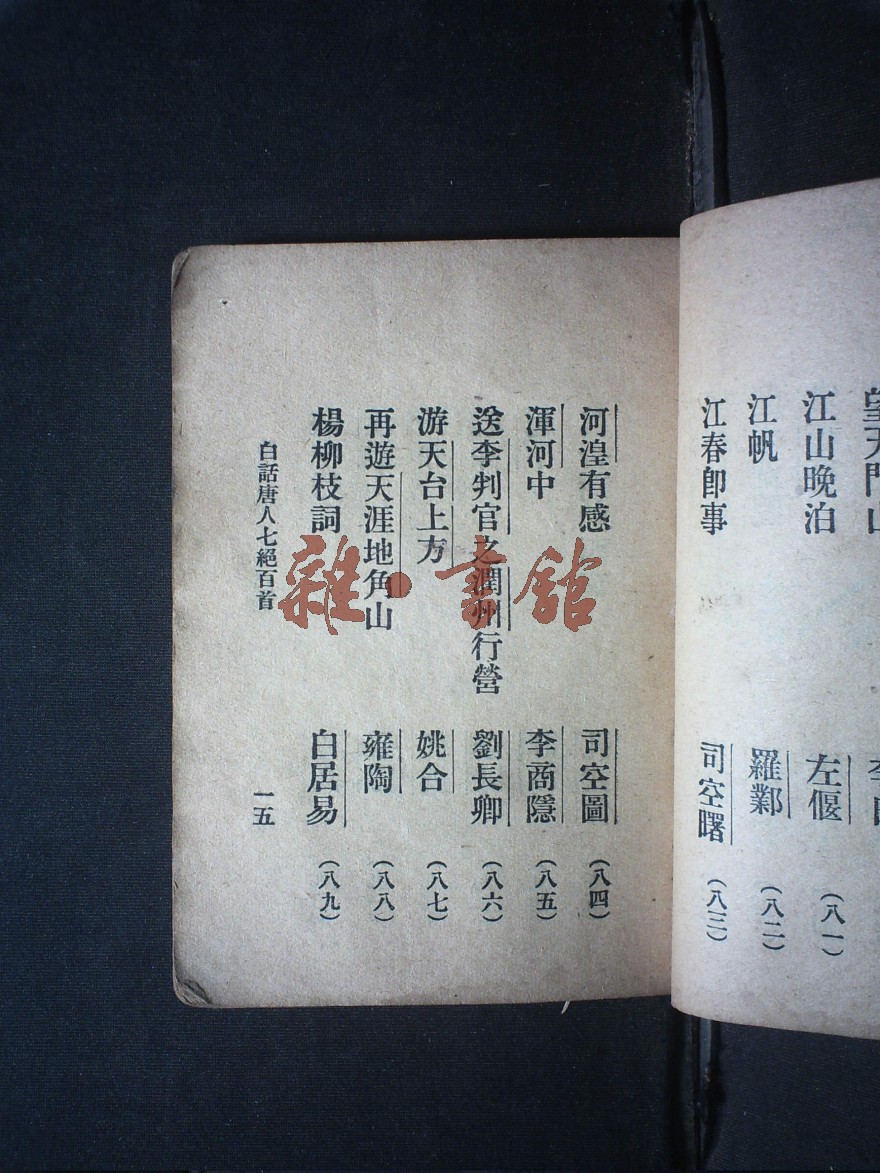 望天門山
江山晚泊 左偃 （八一）
江帆 羅鄴 （八二）
江春卽事 司空曙 （八三）
河湟有感 司空圖 （八四）
渾河中 李商隱 （八五）
送李判官之潤州行營 劉長卿 （八六）
游天台上方 姚合 （八七）
再遊天涯地角山 雍陶 （八八）
楊柳枝詞 白居易 （八九）
白話唐人七絕百首 一五
雜·書館